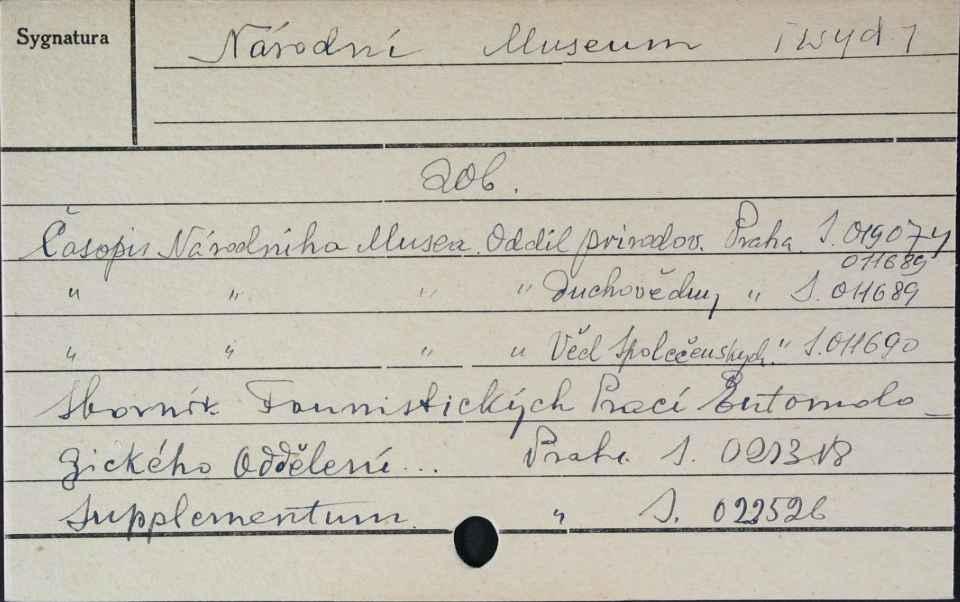 Sygnatura
Národní Museum i wyd.
zob.
Časopis Národniho Musea. Oddil prirodov. Praha. S. 019074
011689
" " " " Duchovědny " S. 011689
" " " " Věd Společenskych. " S. 011690
Sbornik Faunistických Prací Entomolo-
gického Oddělení... Praha. S. 021318
Supplementum. " S. 022526